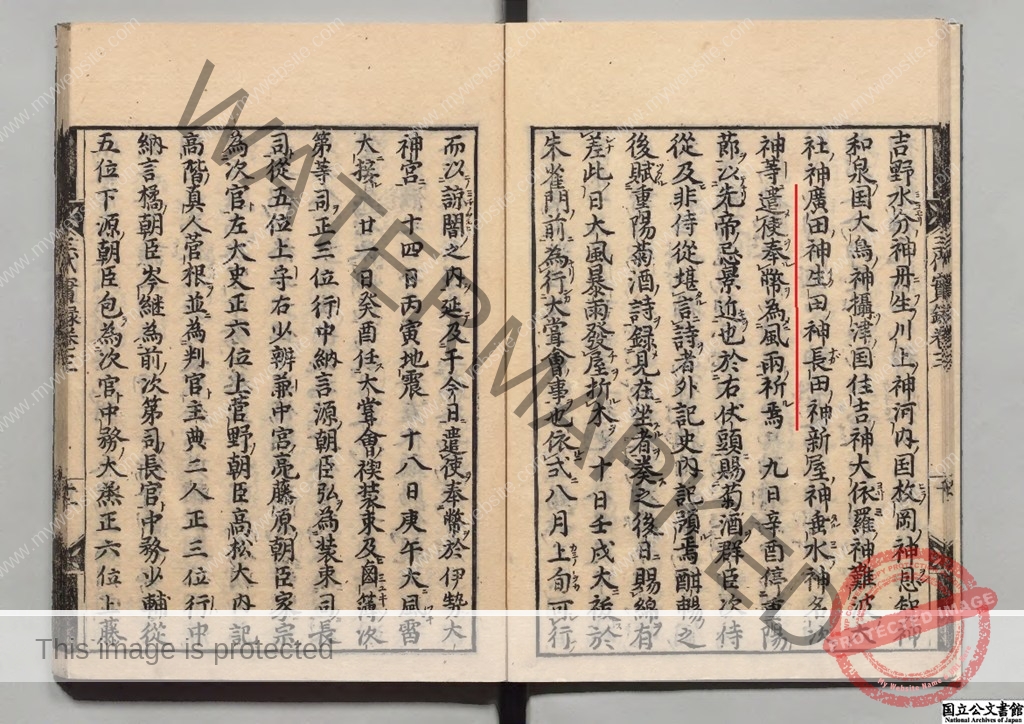 吉野水分神丹生川上神河内国枚岡神恩智神
和泉国大鳥神攝津国住吉神大依羅神難波
社神廣田神生田神長田神新屋神垂水神名次
神等遣使奉幣為風雨祈焉 九日辛酉停重陽
節以先帝忌景近也於右仗頭賜菊酒群臣次侍
從及非侍從堪言詩者外記史内記預焉酣暢之
後賦重陽菊酒詩録見在坐者奏之後日賜綿有
差此日大風暴雨發屋折木 十日壬戌大祓於
朱雀門前為行大嘗會事也依式八月上旬可行
而以諒闇之内延及于今日遣使奉幣於伊勢大
神宮 十四日丙寅地震 十八日庚午大風雷
大 廿一日癸酉任大嘗會禊装束及 簿次
第等司正三位行中納言源朝臣弘為装束司長
司從五位上守右少辨兼中宮亮藤原朝臣家宗
為次官左大史正六位上菅野朝臣高松大内記
高階真人菅根並為判官主典二人正三位行中
納言橘朝臣岑継為前次第司長官中務少輔從
五位下源朝臣包為次官中務大丞正六位上藤
三代實録卷三
三代實録卷三
WATERMARKED
This image is protected
PROTECTED IMAGE
PROTECTED IMAGE
My Website Name
www.mywebsite.com
国立公文書館
National Archives of Japan